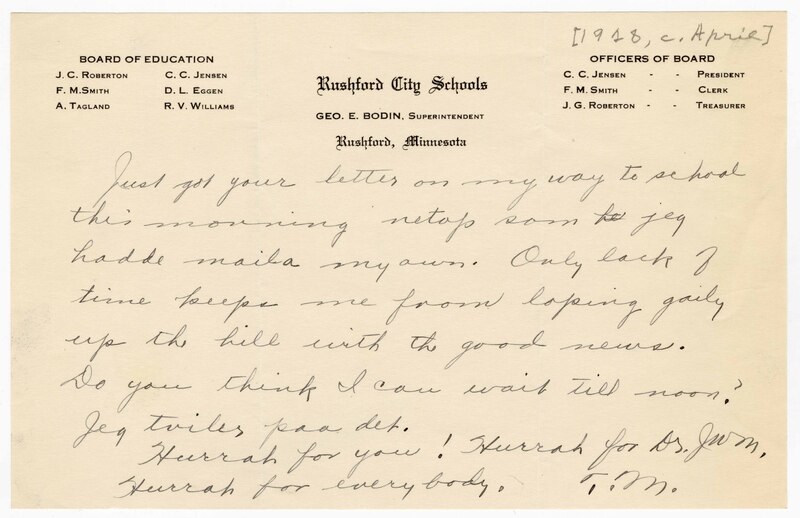 [1918, c. April]
BOARD OF EDUCATION
J. C. ROBERTON C. C. JENSEN
F. M. SMITH D. L. EGGEN
A. TAGLAND R. V. WILLIAMS
Rushford City Schools
GEO. E. BODIN, SUPERINTENDENT
Rushford, Minnesota
OFFICERS OF BOARD
C. C. JENSEN - - PRESIDENT
F. M. SMITH - - CLERK
J. G. ROBERTON - - TREASURER
Just got your letter on my way to school
this morning netop som jeg
hadde maila my own. Only lack of
time keeps me from loping gaily
up the hill with the good news.
Do you think I can wait till noon?
Jeg tviler paa det.
Hurrah for you! Hurrah for Dr. JWM.
Hurrah for everybody. T. M.